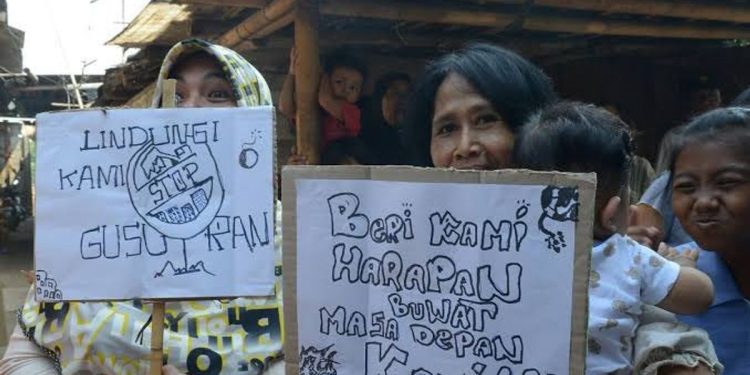 LINDUNGI
KAMI
STOP
GUSU RAN
BERI KAMI
HARAPAN
BUWAT
MASA DEPAN